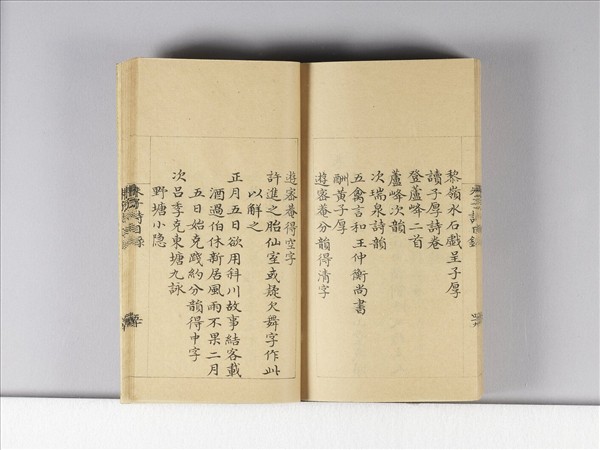 黎嶺水石戲呈子厚
讀子厚詩卷
登蘆峰二首
蘆峰次韻
次瑞泉詩韻
五禽言和王仲衡尚書
酬黃子厚
遊密菴分韻得清字
遊密菴得空字
許進之胎仙室或疑欠舞字作此
以解之
正月五日欲用斜川故事結客載
酒過伯休新居風雨不果二月
五日始克踐約分韻得中字
次呂季克東塘九詠
野塘小隱